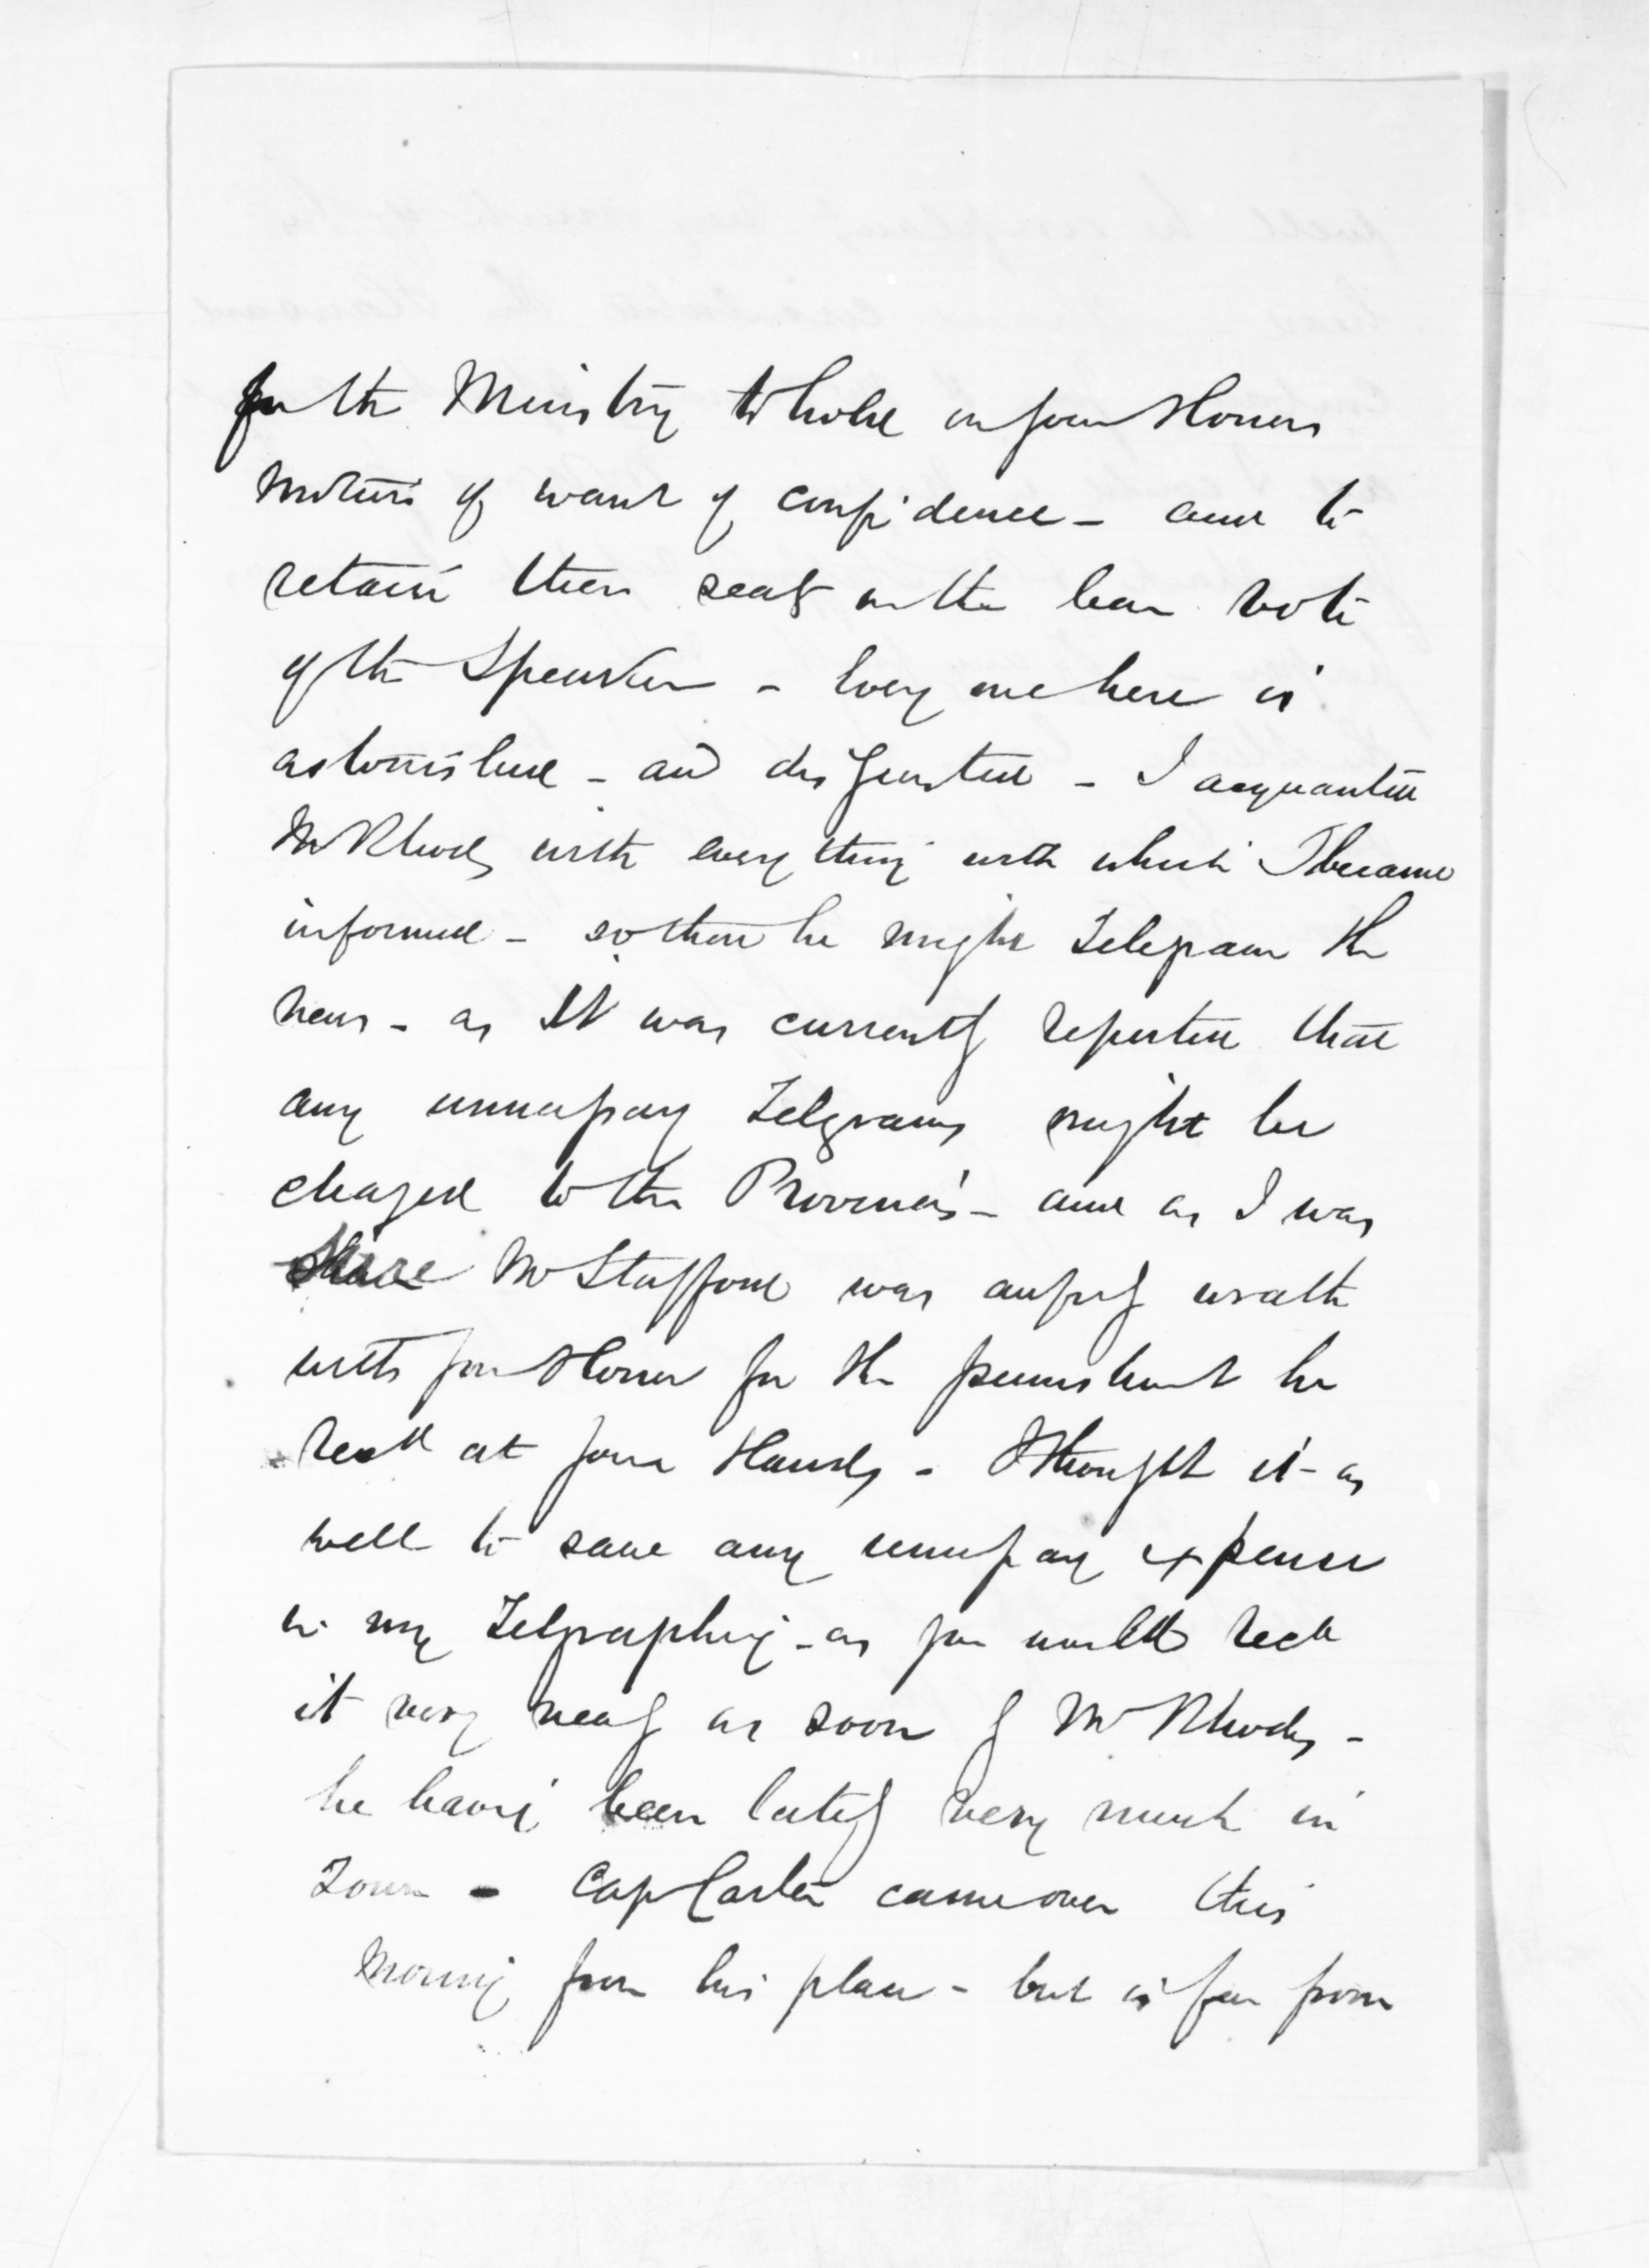 for the Ministry to hold on your Honors
motion of want of confidence - and to
retain their seats on the bare vote
of the Speaker - Every one here is
astonished - and disgusted - I acquainted
Mr Rhodes with every thing with which I became
informed - so that he might Telegram the
news - as It was currently reported that
any unnecessary Telegrams might be
charged to the Province - and as I was
Mr Stafford was awfully wrath
with your Honor for the punishment he
recd at your Hands - I thought it as
well to save any unnecessary expense
in my Telegraphing - as you would recd
it very nearly as soon by Mr Rhodes -
he having been lately very much in
Town - Cap Carter came over this
morning from his place - but is far from